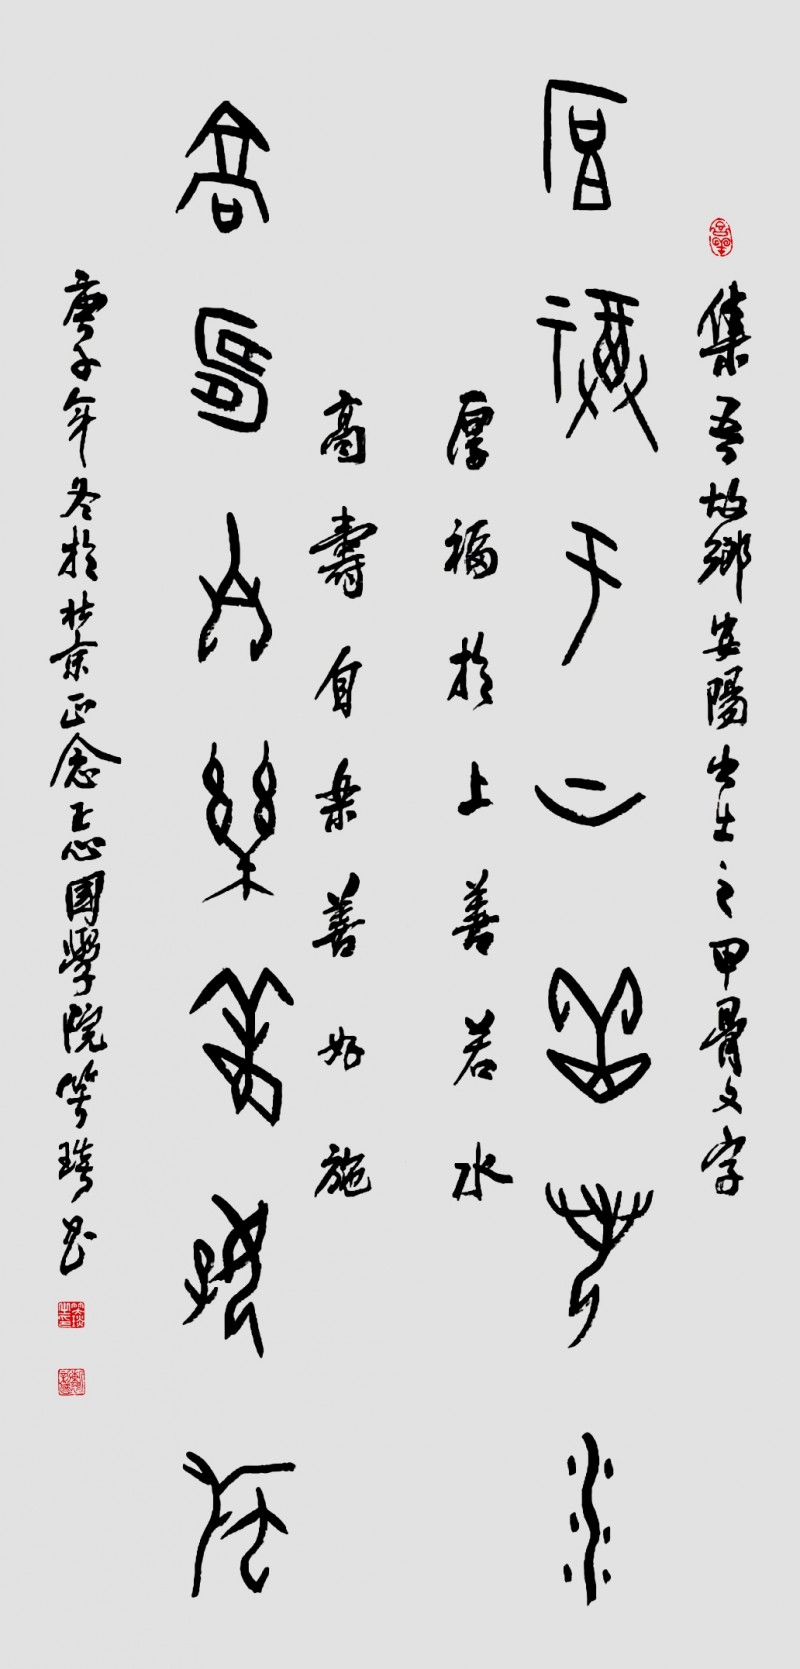 集吾故鄉安陽出土之甲骨文字
厚福于上善若水
厚福於上善若水
高壽自樂善好施
高壽自樂善好施
庚子年冬於北京正念正態國學院笑琦書